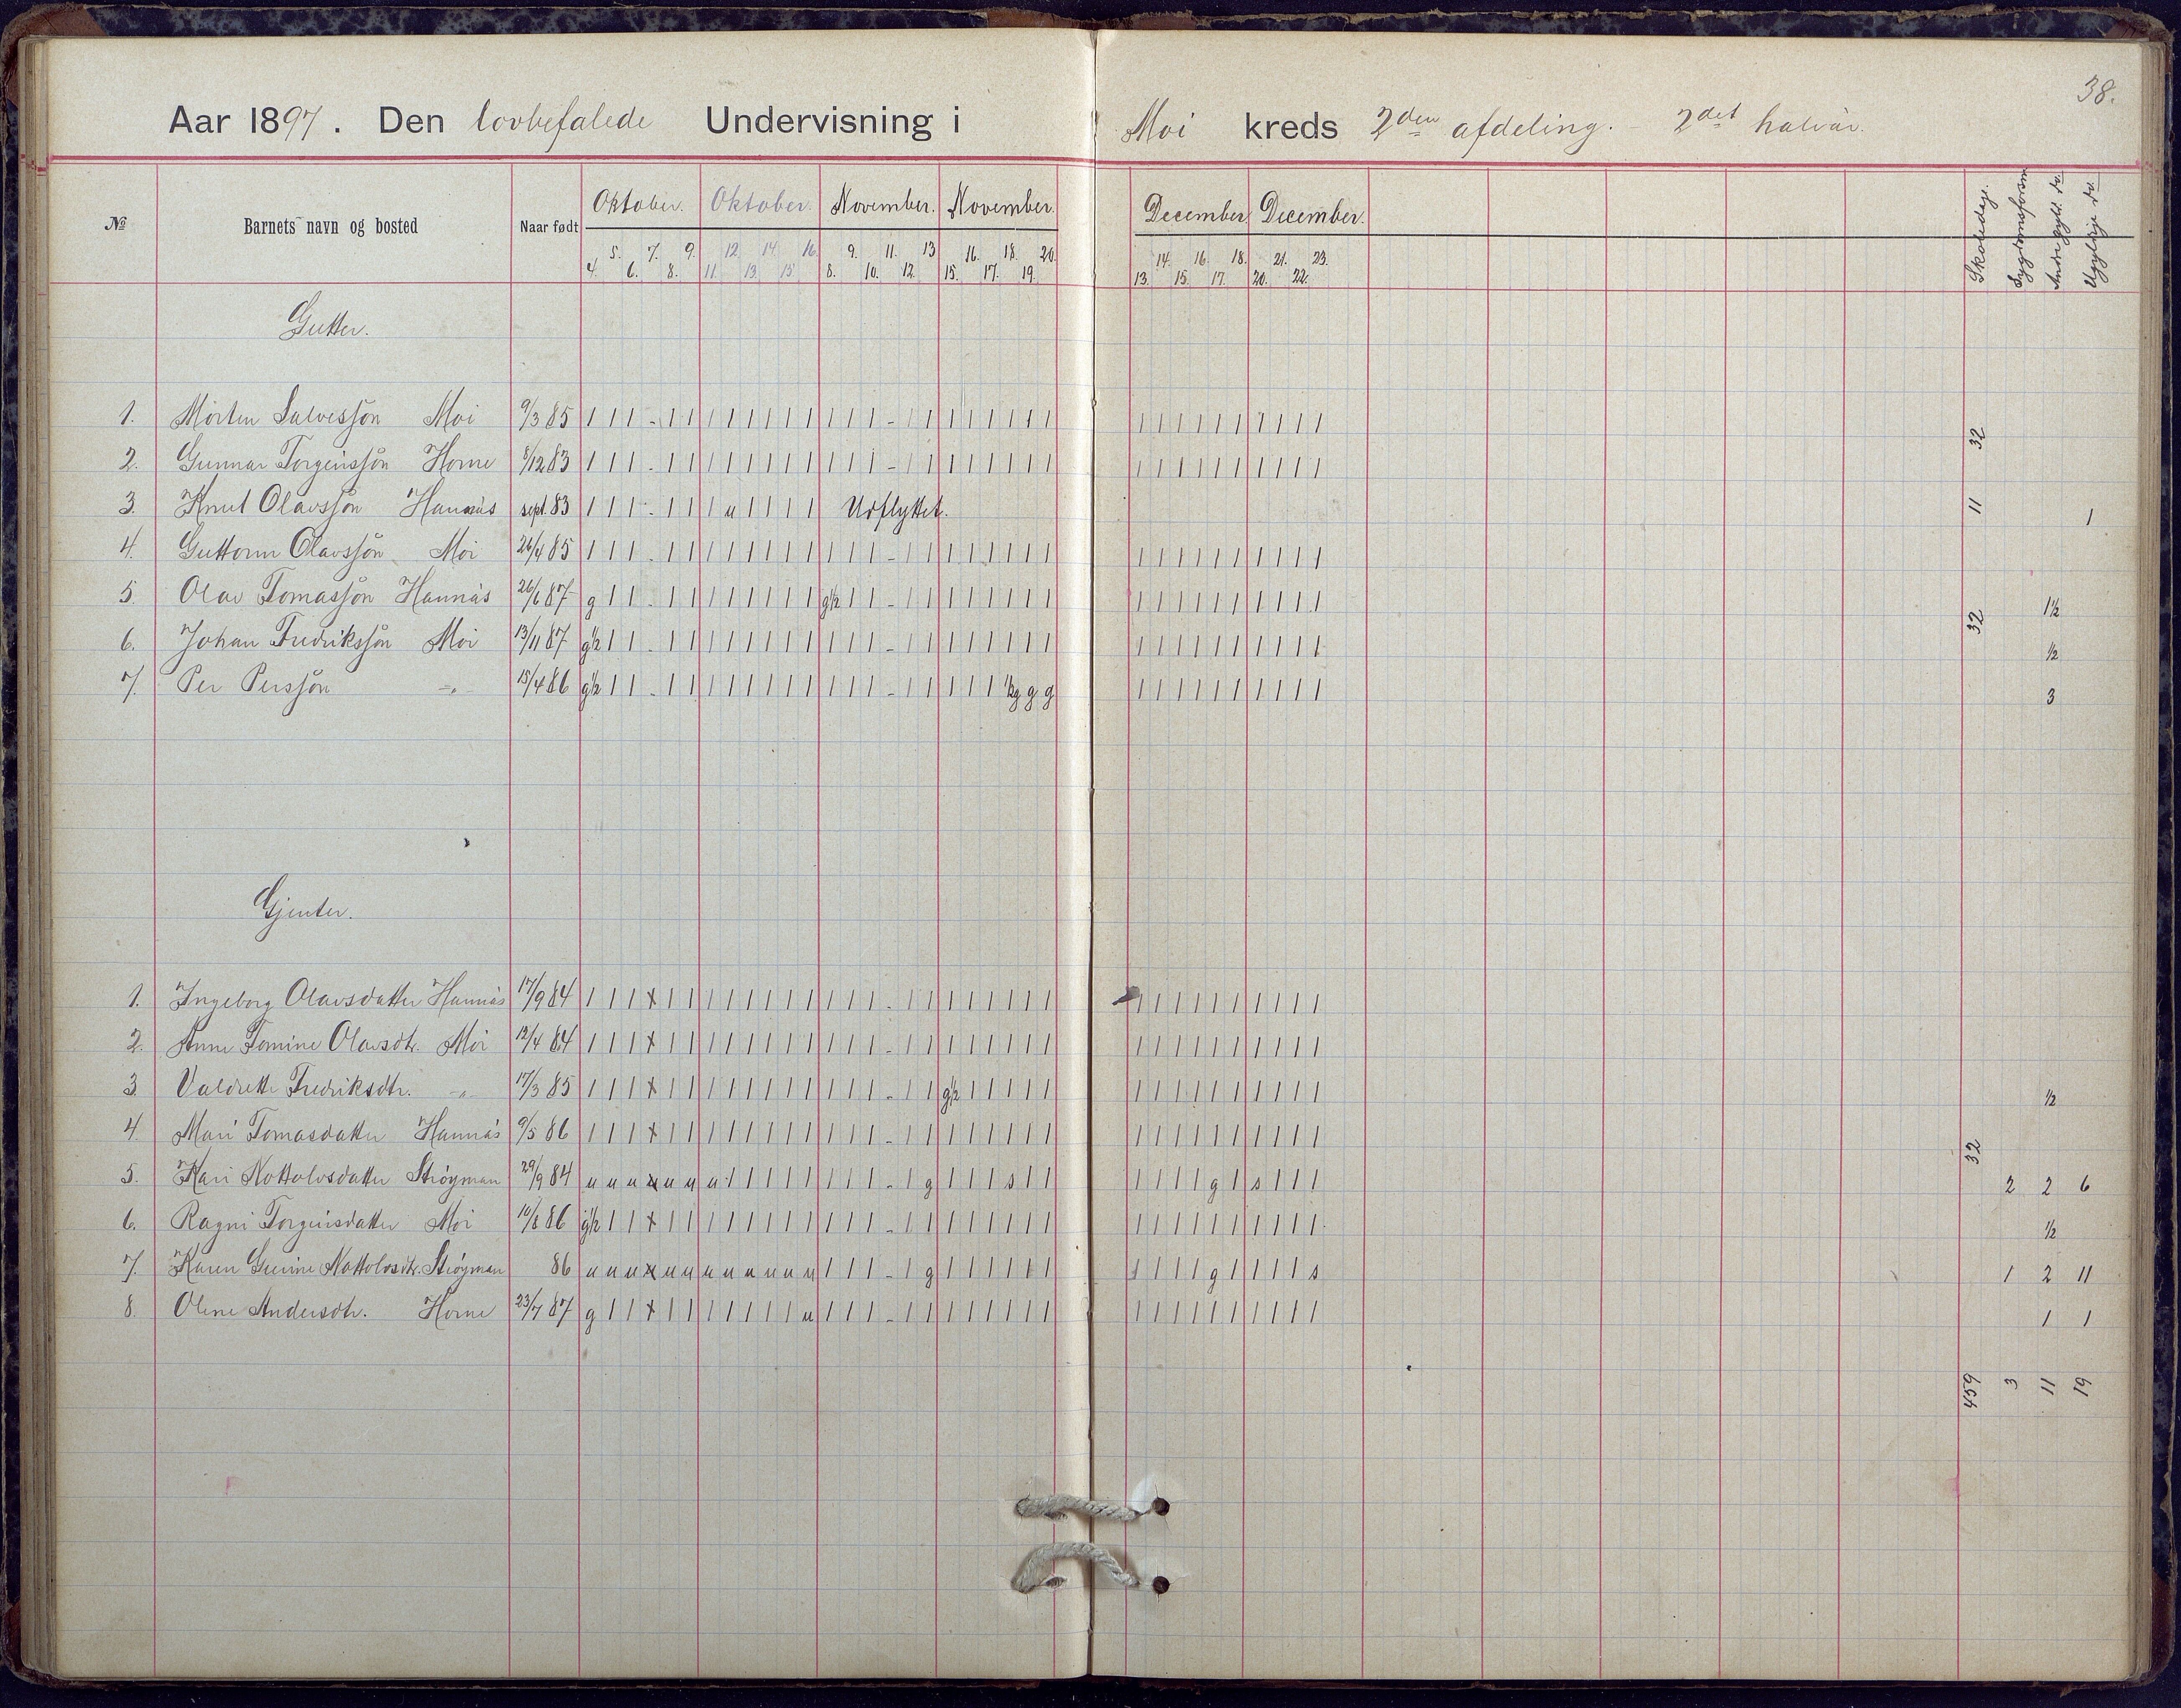 38.
Aar 1897. Den lovbefalede Undervisning i Moi kreds 2den afdeling. - 2det halvår.
№ Barnets navn og bosted Naar født Oktober. Oktober. November. November. December December. Skoledage. Sygdomsforsøm Andre gyld. do. Ugyldige do.
5. 7. 9. 12. 14. 16. 9. 11. 13 16. 18. 20. 14. 16. 18. 21. 23.
4. 6. 8. 11. 13. 15. 8. 10. 12. 15. 17. 19. 13. 15. 17. 20. 22.
Gutter.
1. Morten Salvesjøn Moi 9/3 85 | | | - | | | | | | | | | | | - | | | | | | | | | | | | | | | | | |
2. Gunnar Torgeirssjøn Horne 8/12 83 | | | - | | | | | | | | | | | - | | | | | | | | | | | | | | | | | | 32
3. Knut Olavssjøn Hannås sept. 83 | | | - | | | u | | | | Udflyttet. 11 1
4. Guttorm Olavssjøn Moi 26/4 85 | | | - | | | | | | | | | | | - | | | | | | | | | | | | | | | | | |
5. Olav Tomassjøn Hannås 26/6 87 g | | - | | | | | | | | g½ | | - | | | | | | | | | | | | | | | | | | 32 1½
6. Johan Fredrikssjøn Moi 13/11 87 g½ | | - | | | | | | | | | | | - | | | | | | | | | | | | | | | | | | ½
7. Per Perssjøn -"- 15/4 86 g½ | | - | | | | | | | | | | | - | | | | | ½g g g | | | | | | | | | | 3
Gjenter.
1. Ingeborg Olavsdatter Hannås 17/9 84 | | | x | | | | | | | | | | | - | | | | | | | | | | | | | | | | | |
2. Anne Tomine Olavsdtr. Moi 12/4 84 | | | x | | | | | | | | | | | - | | | | | | | | | | | | | | | | | |
3. Valdrette Fredriksdtr. -"- 17/3 85 | | | x | | | | | | | | | | | - | | g½ | | | | | | | | | | | | | | | ½
4. Mari Tomasdatter Hannås 9/5 86 | | | x | | | | | | | | | | | - | | | | | | | | | | | | | | | | | | 32
5. Kari Nottolvsdatter Strøyman 29/9 84 u u u x u u u | | | | | | | | - | g | | | s | | | | | | g | s | | | 2 2 6
6. Ragni Torgeirsdatter Moi 10/8 86 g½ | | x | | | | | | | | | | | - | | | | | | | | | | | | | | | | | | ½
7. Karen Gurine Nottolvsdtr. Strøyman 86 u u u x u u u u u u u u | | | - | g | | | | | | s | | | g | | | | s 1 2 11
8. Oline Andersdtr. Horne 23/7 87 g | | x | | | | | | | u | | | - | | | | | | | | | | | | | | | | | | 1 1
459 3 11 19